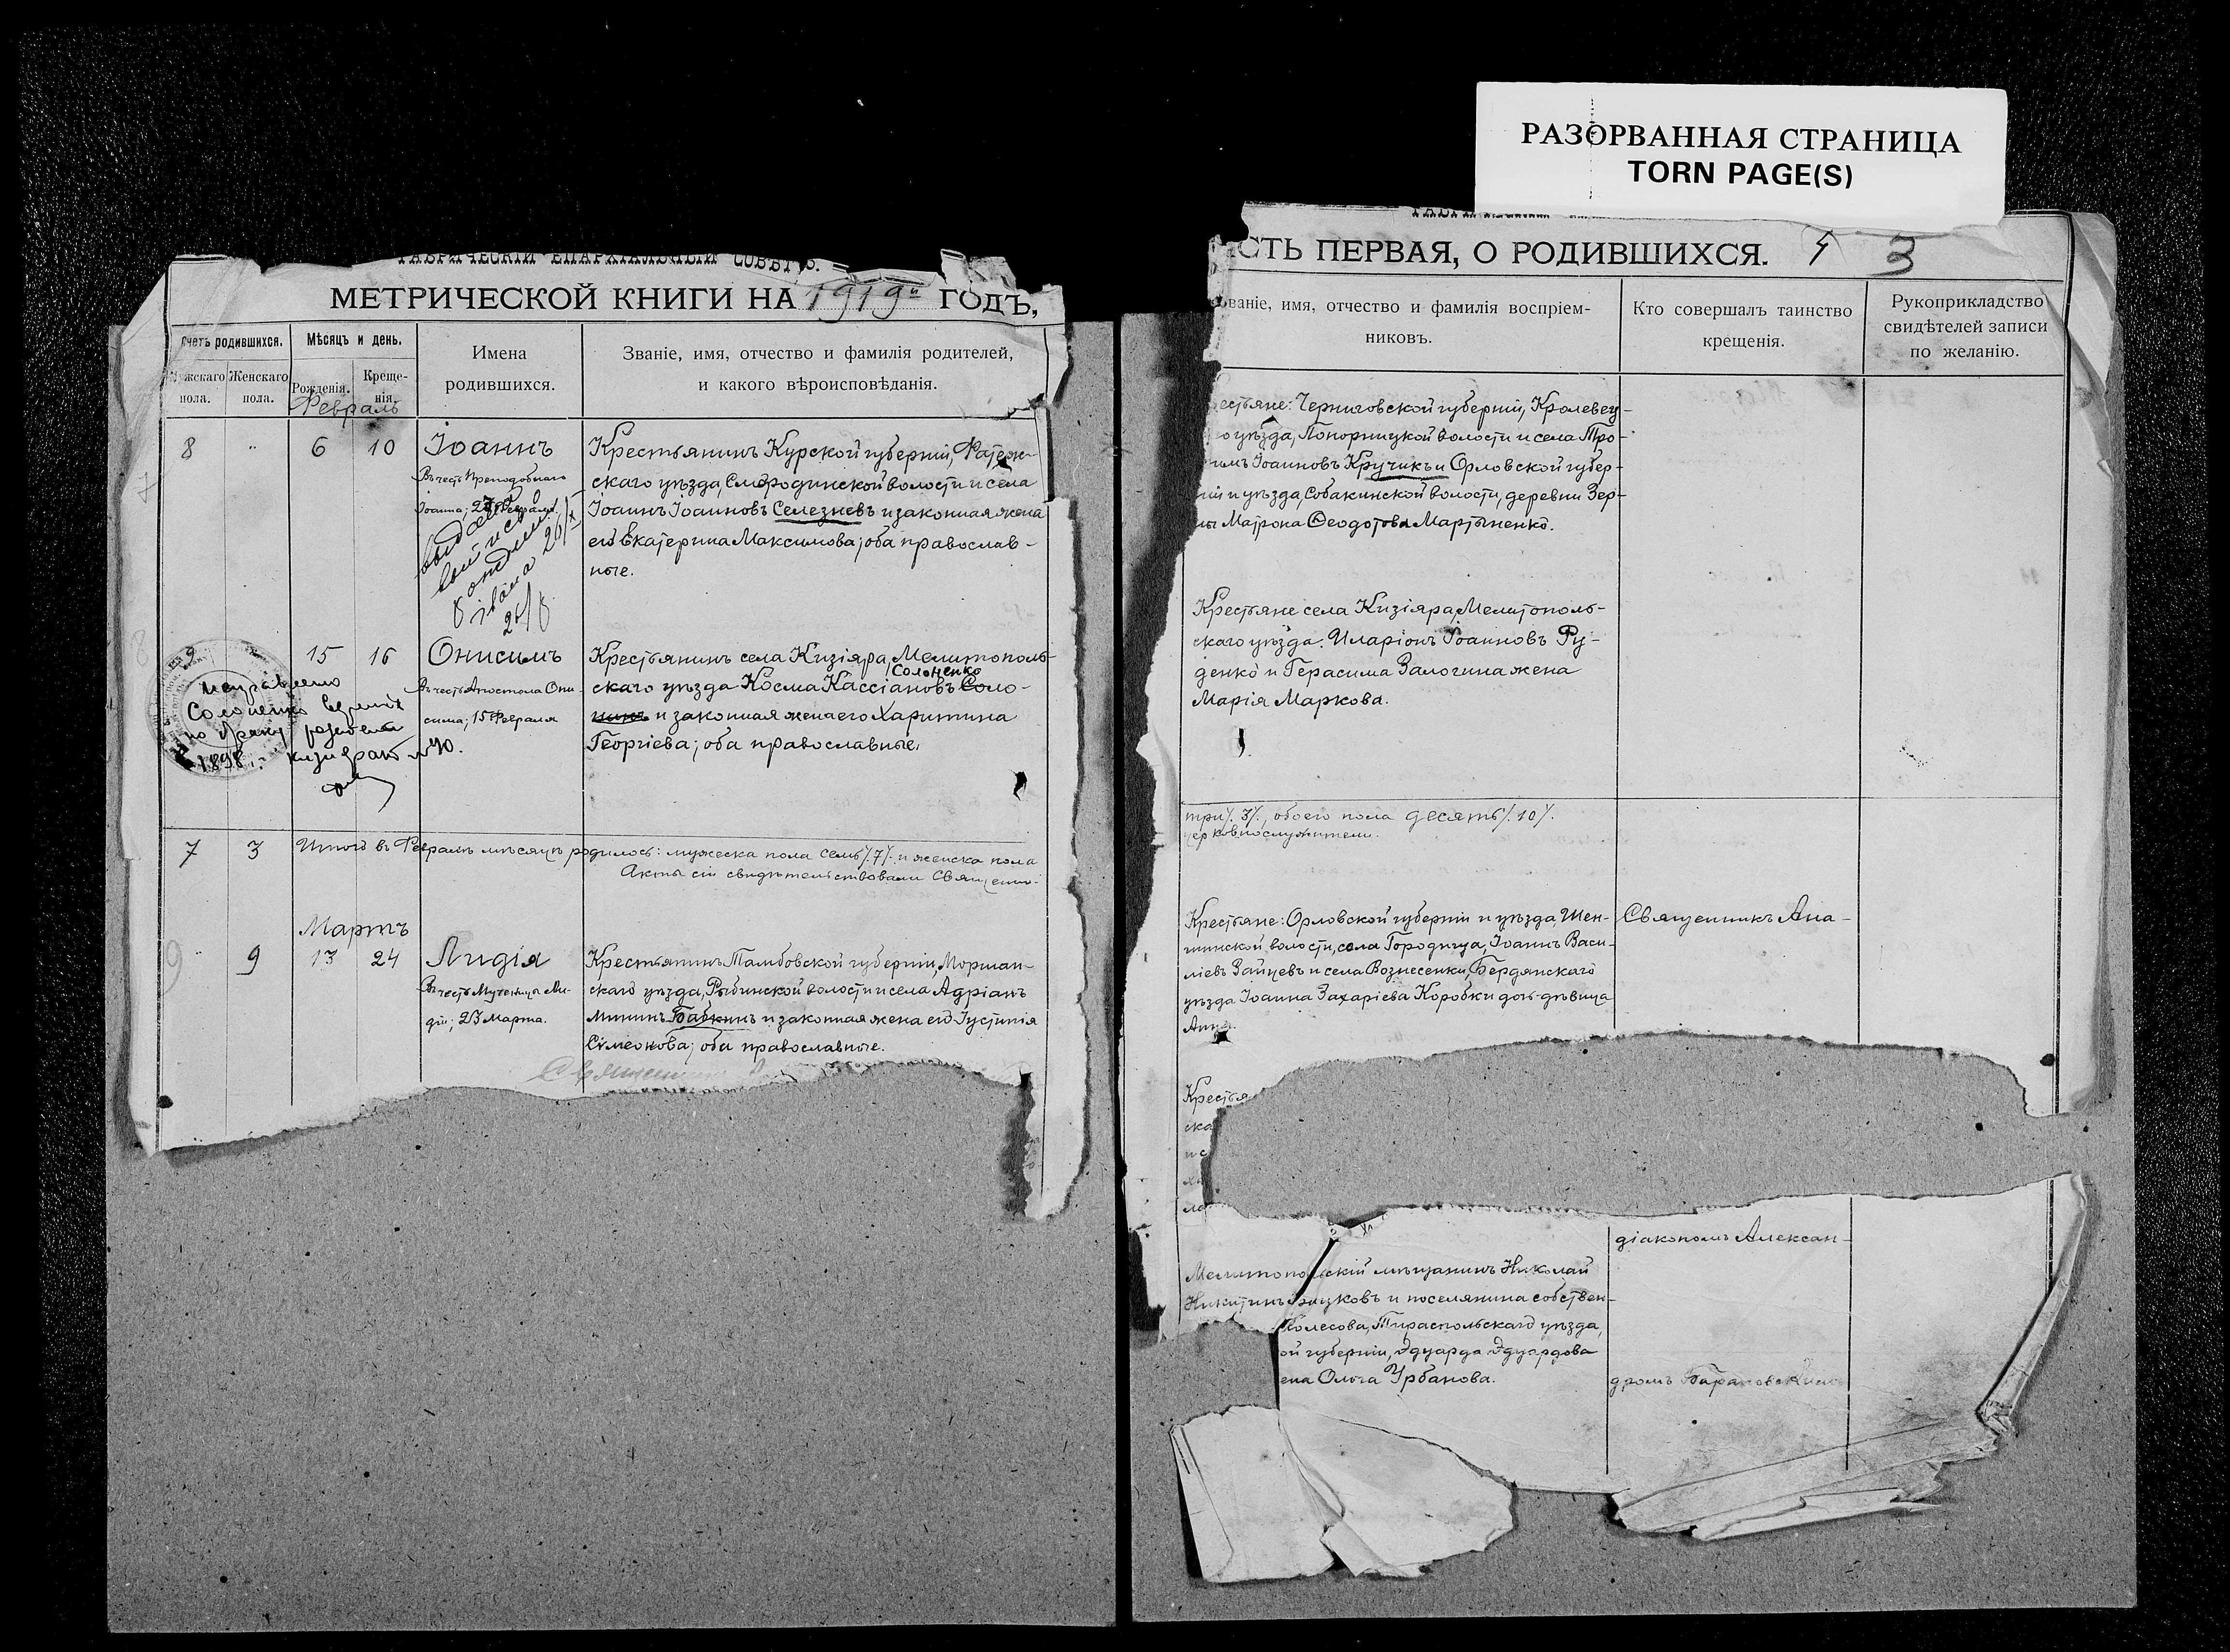 РАЗОРВАННАЯ СТРАНИЦА
TORN PAGE(S)
ТАВРИЧЕСКІЙ ЕПАРХІАЛЬНЫЙ СОВѢТЪ.
МЕТРИЧЕСКОЙ КНИГИ НА 1919й ГОДЪ,
Счетъ родившихся.
Мужскаго пола.
Женскаго пола.
Мѣсяцъ и день.
Рожденія.
Креще-
нія.
Имена
родившихся.
Званіе, имя, отчество и фамилія родителей,
и какого вѣроисповѣданія.
Февраль
8 " 6 10 Іоаннъ
Въ честь Преподобнаго
Іоанна; Февраля.
Крестьянинъ Курской губерніи, Фатеж-
скаго уѣзда, Смородинской волости и села
Іоаннъ Іоанновъ Селезневъ и законная жена
его Екатерина Максимова; оба православ-
ные.
9 15 16 Онисимъ
Въ честь Апостола Они-
сима; 15 Февраля
Крестьянинъ села Кизіяра, Мелитополь-
Солоненко
скаго уѣзда Косма Кассіановъ Соло-
и законная жена его Харитина
Георгіева; оба православные.
Солоненко
1898 г.
7 3 Итого въ Февралѣ мѣсяцѣ родилось: мужеска пола семь /.7/. и женска пола
Акты сіи свидѣтельствовали Священно-
Мартъ
" 9 13 24 Лидія
Въ честь Мученицы Ли-
діи; 23 Марта.
Крестьянинъ Тамбовской губерніи, Моршан-
скаго уѣзда, Рыбинской волости и села Адріанъ
Мининъ Бабкинъ и законная жена его Іустинія
Симеонова; оба православные.
СТЬ ПЕРВАЯ, О РОДИВШИХСЯ. 3
ваніе, имя, отчество и фамилія воспріем-
никовъ.
Кто совершалъ таинство
крещенія.
Рукоприкладство
свидѣтелей записи
по желанію.
естьяне: Черниговской губерніи, Кролевец-
о уѣзда, Понорницкой волости и села Тро-
имъ Іоанновъ Кручикъ и Орловской губер-
ніи и уѣзда, Собакинской волости, деревни Зер-
Матрона Ѳеодотова Мартыненко.
Крестьяне села Кизіяра, Мелитополь-
скаго уѣзда: Иларіонъ Іоанновъ Ру-
денко и Герасима Залогина жена
Марія Маркова.
три /.3/., обоего пола десять /.10/.
церковнослужители.
Крестьяне: Орловской губерніи и уѣзда, Шен-
шинской волости, села Городища, Іоаннъ Васи-
ліевъ Зайцевъ и села Вознесенки, Бердянскаго
уѣзда Іоанна Захаріева Коробки дочь-дѣвица
Анна.
Священникъ Ана-
Крестья
ска
и с
діакономъ Алексан-
Мелитопольскій мѣщанинъ Николай
Никитинъ и поселянина собствен-
Колесова, Тираспольскаго уѣзда,
ой губерніи, Эдуарда Эдуардова
ена Ольга Урбанова.
дромъ Барановскимъ